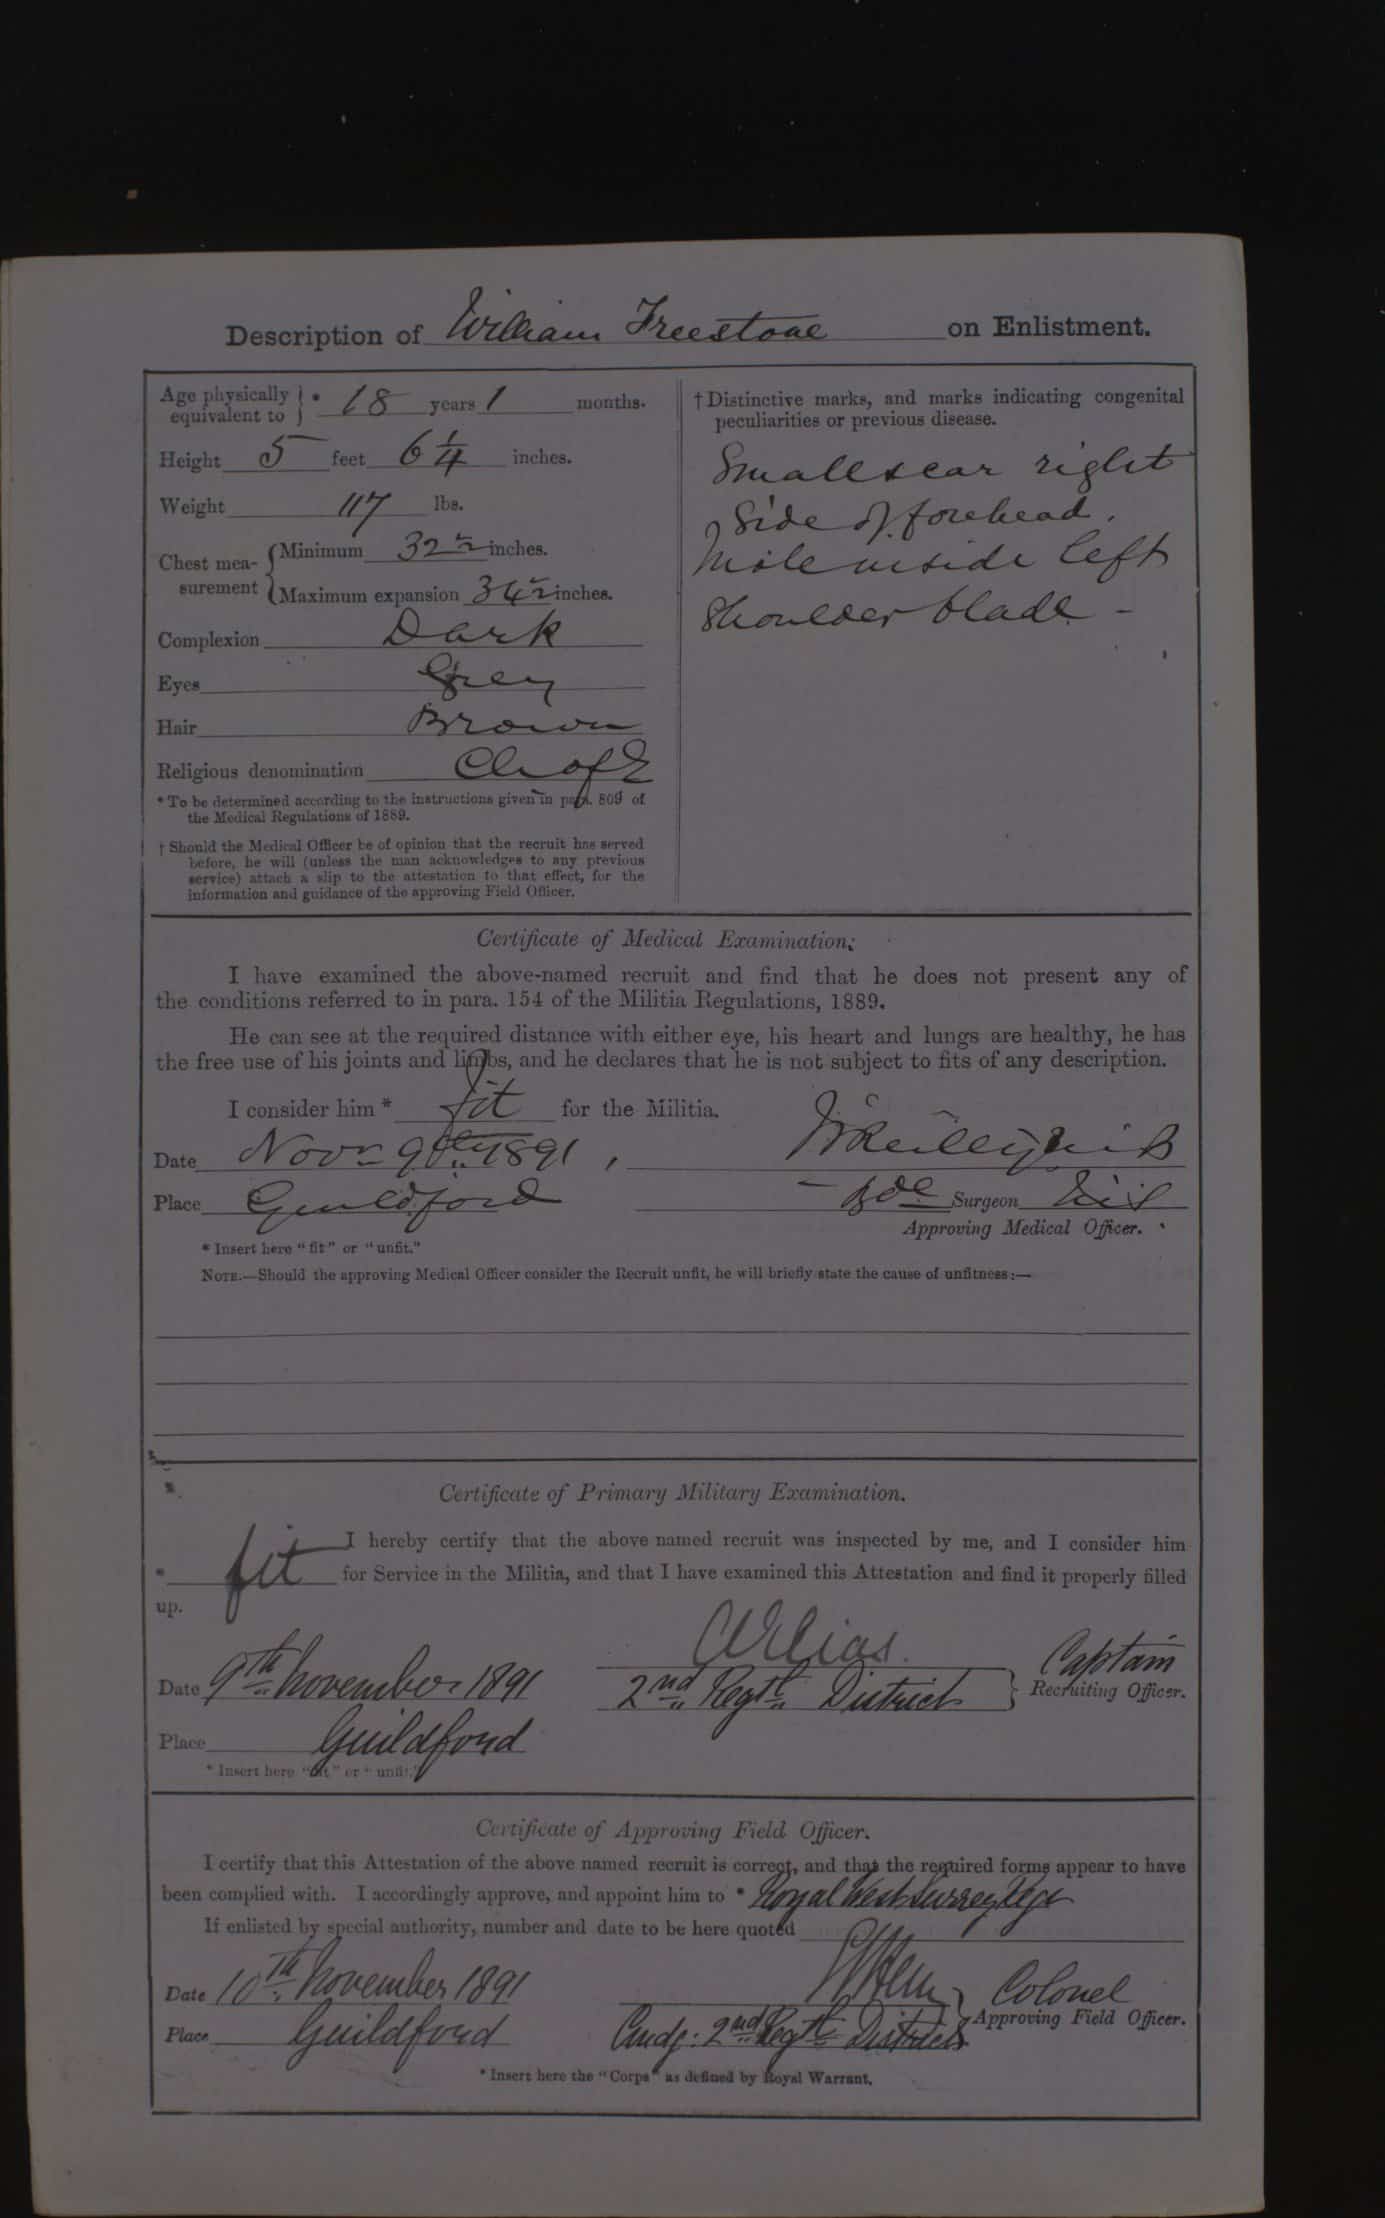 Description of William Freestone on Enlistment.
Age physically equivalent to } * 18 years 1 months.
Height 5 feet 6 1/4 inches.
Weight 117 lbs.
Chest mea- { Minimum 32 ½ inches.
surement { Maximum expansion 34 ½ inches.
Complexion Dark
Eyes Grey
Hair Brown
Religious denomination Ch of E
* To be determined according to the instructions given in para. 809 of
the Medical Regulations of 1889.
† Should the Medical Officer be of opinion that the recruit has served
before, he will (unless the man acknowledges to any previous
service) attach a slip to the attestation to that effect, for the
information and guidance of the approving Field Officer.
† Distinctive marks, and marks indicating congenital
peculiarities or previous disease.
Small scar right
side of forehead.
Mole inside left
shoulder blade -
Certificate of Medical Examination.
I have examined the above-named recruit and find that he does not present any of
the conditions referred to in para. 154 of the Militia Regulations, 1889.
He can see at the required distance with either eye, his heart and lungs are healthy, he has
the free use of his joints and limbs, and he declares that he is not subject to fits of any description.
I consider him * fit for the Militia.
Date Novr 9th 1891,
Place Guildford Bde Surgeon
Approving Medical Officer.
* Insert here "fit" or "unfit."
NOTE.—Should the approving Medical Officer consider the Recruit unfit, he will briefly state the cause of unfitness:—
Certificate of Primary Military Examination.
I hereby certify that the above named recruit was inspected by me, and I consider him
* fit for Service in the Militia, and that I have examined this Attestation and find it properly filled
up.
Captain
Date 9th November 1891 2nd Regtl District } Recruiting Officer.
Place Guildford
* Insert here "fit" or "unfit."
Certificate of Approving Field Officer.
I certify that this Attestation of the above named recruit is correct, and that the required forms appear to have
been complied with. I accordingly approve, and appoint him to * Royal West Surrey Regt
If enlisted by special authority, number and date to be here quoted
Date 10th November 1891 Colonel
Place Guildford Cmdg: 2nd Regtl District } Approving Field Officer.
* Insert here the "Corps" as defined by Royal Warrant.